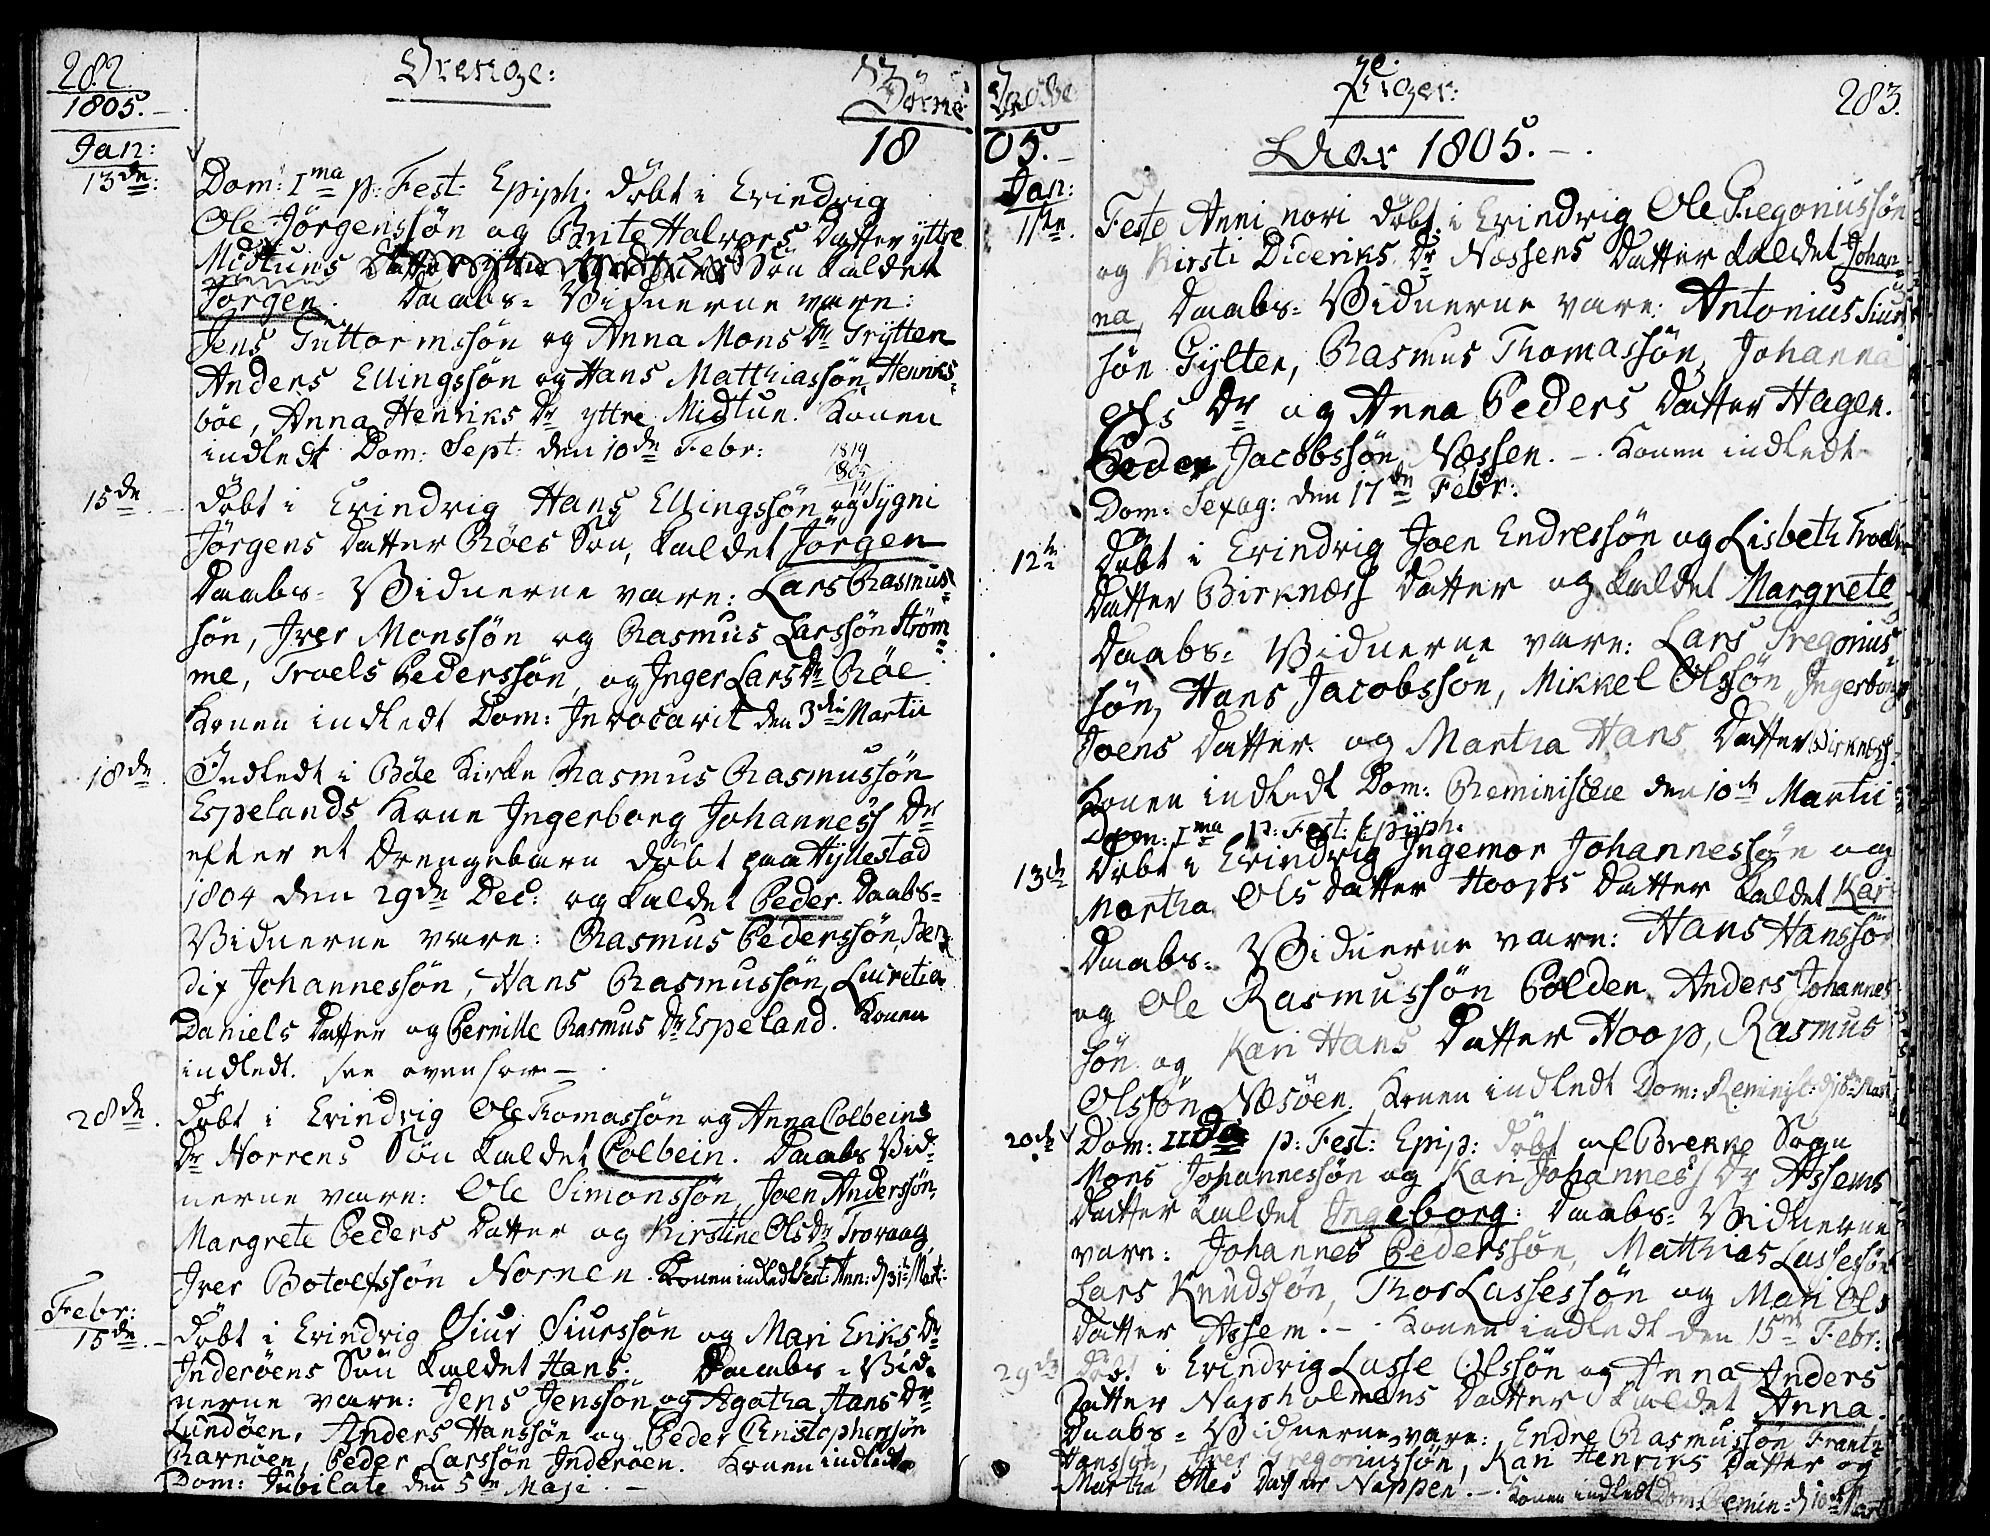 282.
Drenge:
Börne
1805.
18
Jan:
13de:
Dom: 1ma p: Fest: Epiph: döbt i Evindvig
Ole Jörgenssön og Brite Halvors Datter yttre
Midtuns Sön kaldet
Jörgen. Daabs= Vidnerne vare:
Jens Guttormssön og Anna Mons Dr Trytten
Anders Ellingssön og Hans Matthiassön Henriks=
böe, Anna Henriks Dr yttre Midtun. Konen
indledt Dom: Sept: den 10de Febr:
1819
1805
14
15de
Döbt i Evindvig Hans Ellingssön og Sygni
Jörgens Datter Röes Sön, kaldet Jörgen
Daabs= Vidnerne vare: Lars Rasmus=
sön, Iver Monssön og Rasmus Larssön Ström=
me, Troels Pederssön, og Inger Lars Dr Röe.
Konen indledt Dom: Invocavit den 3die Martii
18de
Indledt i Böe Kirke Rasmus Rasmussön
Espelands Kone Ingerborg Johanness Dr
efter et Drengebarn döbt paa Hyllestad
1804 den 29de Dec: og kaldet Peder. Daabs=
Vidnerne vare: Rasmus Pederssön Ben=
dix Johannessön, Hans Rasmussön, Lucretia
Daniels Datter og Pernille Rasmus Dr Espeland. Konen
indledt. see ovenfor
28de
Döbt i Evindvig Ole Thomassön og Anna Colbeins
Dr Norrens Sön kaldet Colbein. Daabs Vid=
nerne vare: Ole Simonssön, Joen Anderssön,
Margrete Peders Datter og Kirstine Ols Dr Trovaag
Iver Botolfssön Nornen. Konen indledt Fest: Ann: d 31te Mart:
Febr:
15de
Döbt i Evindvig Siur Siurssön og Mari Eriks Dr
Inderöens Sön kaldet Hans. Daabs= Vid=
nerne vare: Jens Jenssön og Agatha Hans Dr
Lundöen, Anders Hanssön og Peder Christopherssön
Ravnöen, Peder Larssön Inderöen. Konen indledt
Dom: Jubilate den 5te Maje.
Döbte
Piger:
283.
05.
Aar 1805.
Jan:
11te.
Feste Anni novi döbt i Evindvig Ole Gregoriussön
og Kirsti Dideriks Dr Næssens Datter kaldet Johan=
na, Daabs= Vidnerne vare: Antonius Siur
sön Gylter, Rasmus Thomassön, Johanna
Ols Dr og Anna Peders Datter Hagen.
Peder Jacobssön Næssen. Konen indledt
Dom: Sexag: den 17de Febr:
12te
Döbt i Evindvig Joen Endressön og Lisbeth Troels
Datter Birknæss Datter og kaldet Margrete
Daabs= Vidnerne vare: Lars Gregorius=
sön, Hans Jacobssön, Mikkel Olssön, Ingerborg
Joens Datter og Martha Hans Datter Birknæss.
Konen indledt Dom: Reminiscere den 10de Martii
Dom: 1ma p: Fest: Epiph:
13de
Döbt i Evindvig Ingemor Johannessön og
Martha Ols Datter Hoops Datter kaldet Kari
Daabs= Vidnerne vare: Hans Hanssö
og Ole Rasmussön Polden, Anders Johannes
sön og Kari Hans Datter Hoop, Rasmus
Olssön Næsöen. Konen indledt Dom: Reminisc:
20de
Dom: IIda p: Fest: Epip: döbt af Brekke Sogn
Mons Johannessön og Kari Johanness Dr Assems
Datter kaldet Ingeborg: Daabs= Vidnerne
vare: Johannes Pederssön, Matthias Lassesön
Lars Knudssön, Thor Lassessön og Mari Ols
Datter Assem. Konen indledt den 15de Febr:
29de
Döbt i Evindvig Lasse Olssön og Anna Anders
Datter Napholmens Datter kaldet Anna.
Daabs= Vidnerne vare: Endre Rasmussön, Frantz
Hanssön, Iver Gregoriussön, Kari Henriks Datter og
Martha Datter Nappen. Konen indledt Dom: Remin: d 10de Mart